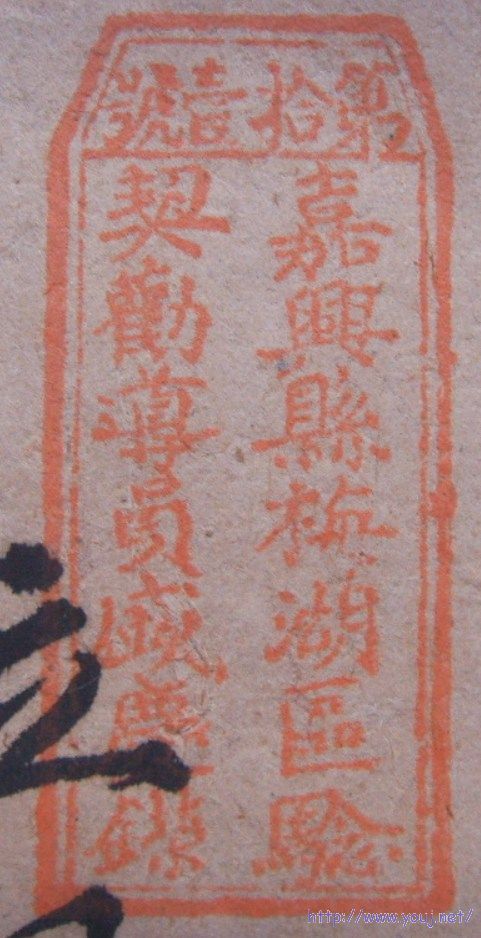 第拾壹號
嘉興縣梅湖區驗
契勸導員戚
立
http://www.youj.net/